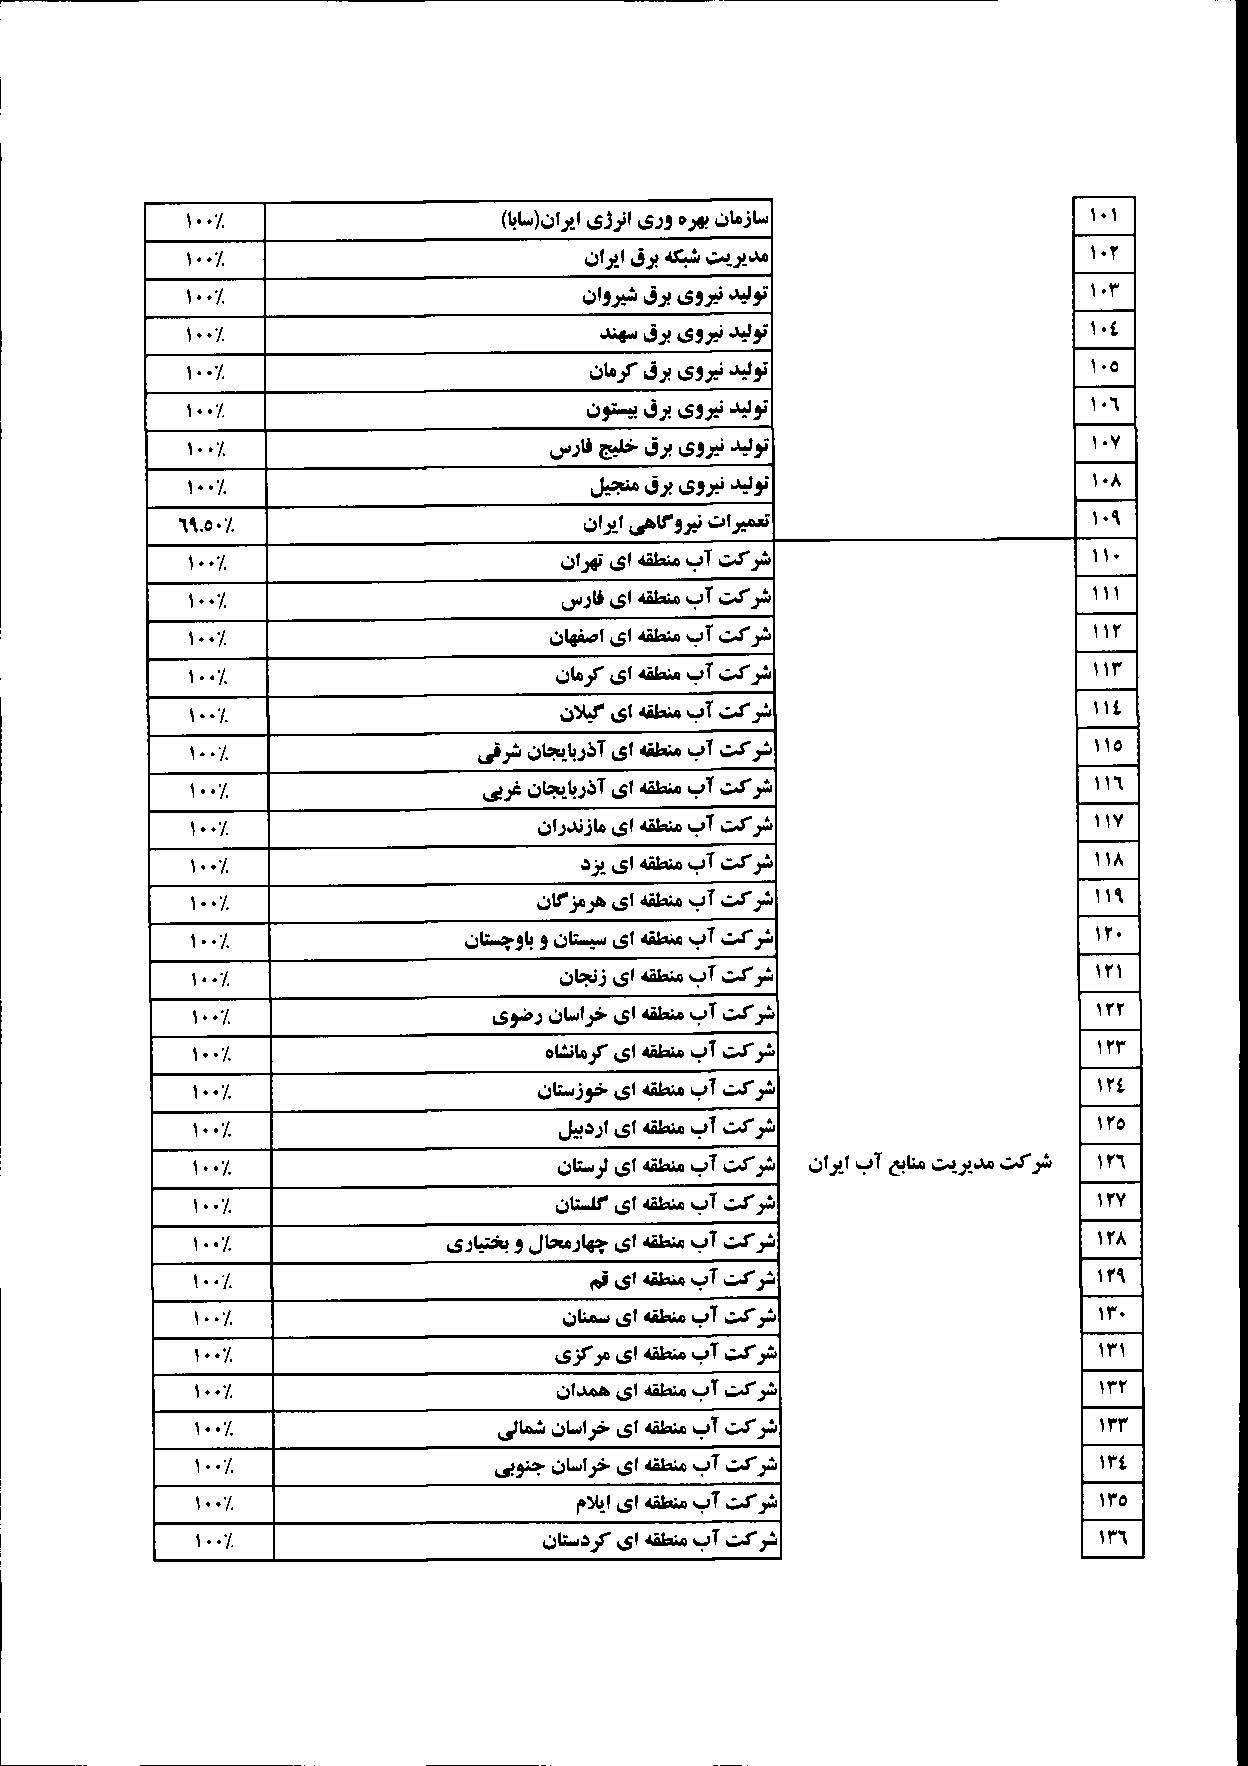 ۱۰۱ سازمان بهره وری انرژی ایران(سابا) ۱۰۰٪
۱۰۲ مدیریت شبکه برق ایران ۱۰۰٪
۱۰۳ تولید نیروی برق شیروان ۱۰۰٪
۱۰٤ تولید نیروی برق سهند ۱۰۰٪
۱۰٥ تولید نیروی برق کرمان ۱۰۰٪
۱۰٦ تولید نیروی برق بیستون ۱۰۰٪
۱۰۷ تولید نیروی برق خلیج فارس ۱۰۰٪
۱۰۸ تولید نیروی برق منجیل ۱۰۰٪
۱۰۹ تعمیرات نیروگاهی ایران ٦۹.٥۰٪
۱۱۰ شرکت آب منطقه ای تهران ۱۰۰٪
۱۱۱ شرکت آب منطقه ای فارس ۱۰۰٪
۱۱۲ شرکت آب منطقه ای اصفهان ۱۰۰٪
۱۱۳ شرکت آب منطقه ای کرمان ۱۰۰٪
۱۱٤ شرکت آب منطقه ای گیلان ۱۰۰٪
۱۱٥ شرکت آب منطقه ای آذربایجان شرقی ۱۰۰٪
۱۱٦ شرکت آب منطقه ای آذربایجان غربی ۱۰۰٪
۱۱۷ شرکت آب منطقه ای مازندران ۱۰۰٪
۱۱۸ شرکت آب منطقه ای یزد ۱۰۰٪
۱۱۹ شرکت آب منطقه ای هرمزگان ۱۰۰٪
۱۲۰ شرکت آب منطقه ای سیستان و باوچستان ۱۰۰٪
۱۲۱ شرکت آب منطقه ای زنجان ۱۰۰٪
۱۲۲ شرکت آب منطقه ای خراسان رضوی ۱۰۰٪
۱۲۳ شرکت آب منطقه ای کرمانشاه ۱۰۰٪
۱۲٤ شرکت آب منطقه ای خوزستان ۱۰۰٪
۱۲٥ شرکت آب منطقه ای اردبیل ۱۰۰٪
۱۲٦ شرکت مدیریت منابع آب ایران شرکت آب منطقه ای لرستان ۱۰۰٪
۱۲۷ شرکت آب منطقه ای گلستان ۱۰۰٪
۱۲۸ شرکت آب منطقه ای چهارمحال و بختیاری ۱۰۰٪
۱۲۹ شرکت آب منطقه ای قم ۱۰۰٪
۱۳۰ شرکت آب منطقه ای سمنان ۱۰۰٪
۱۳۱ شرکت آب منطقه ای مرکزی ۱۰۰٪
۱۳۲ شرکت آب منطقه ای همدان ۱۰۰٪
۱۳۳ شرکت آب منطقه ای خراسان شمالی ۱۰۰٪
۱۳٤ شرکت آب منطقه ای خراسان جنوبی ۱۰۰٪
۱۳٥ شرکت آب منطقه ای ایلام ۱۰۰٪
۱۳٦ شرکت آب منطقه ای کردستان ۱۰۰٪